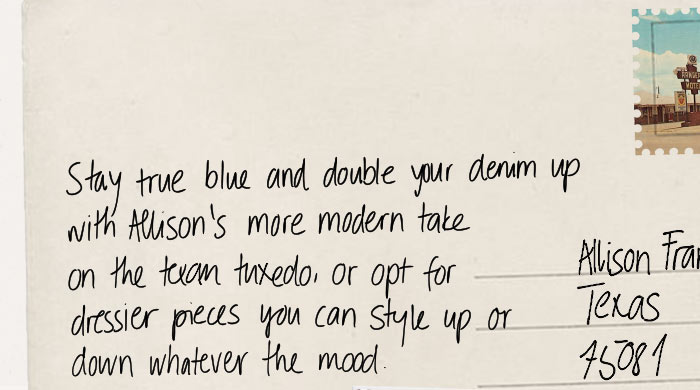 Stay true blue and double your denim up
with Allison's more modern take
on the texan tuxedo, or opt for
dressier pieces you can style up or
down whatever the mood.
Allison Fran
Texas
75081